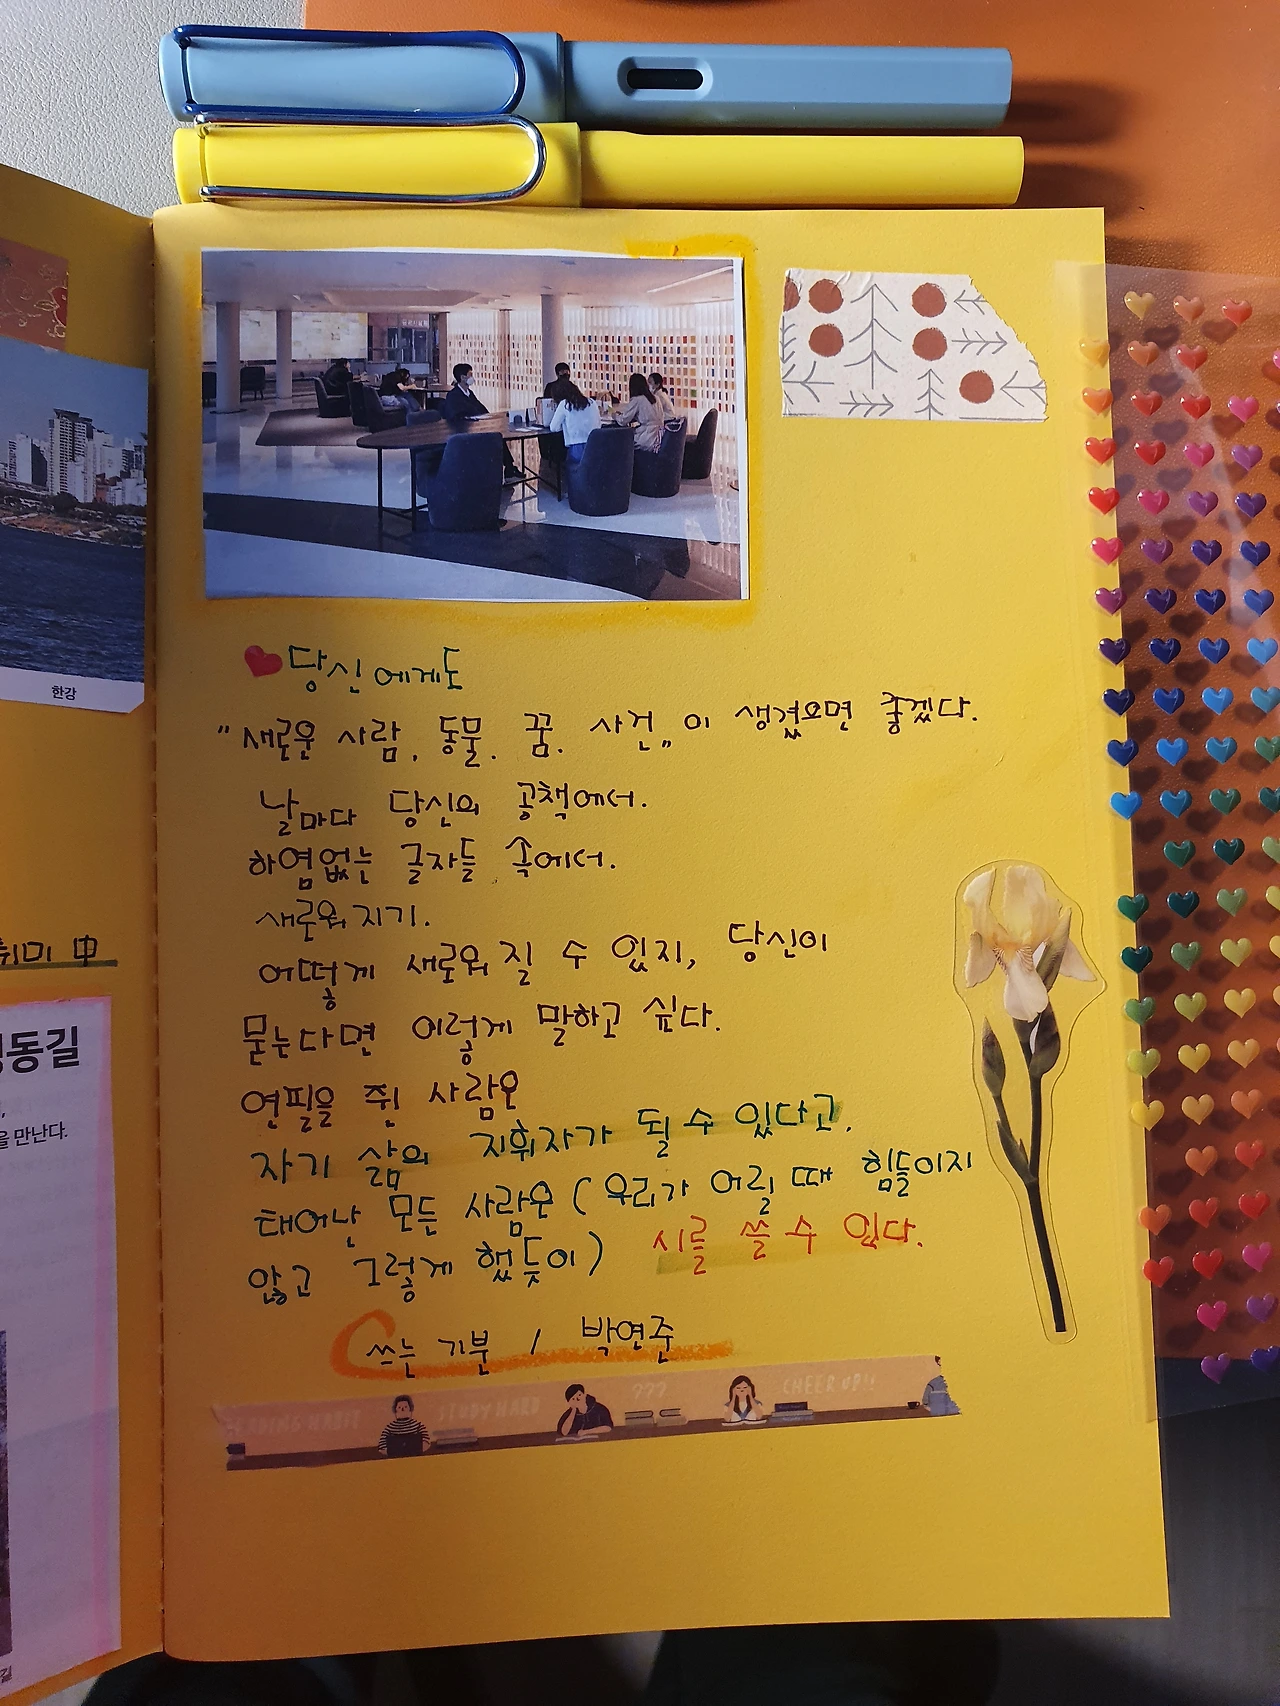 한강
취미 中
동길
을 만난다.
길
당신에게도
"새로운 사람, 동물, 꿈, 사건"이 생겼으면 좋겠다.
날마다 당신의 공책에서.
하염없는 글자들 속에서.
새로워지기.
어떻게 새로워질 수 있지, 당신이
묻는다면 이렇게 말하고 싶다.
연필을 쥔 사람은
자기 삶의 지휘자가 될 수 있다고.
태어난 모든 사람은 (우리가 어릴 때 힘들이지
않고 그렇게 했듯이) 시를 쓸 수 있다.
쓰는 기분 / 박연준
READING HABIT STUDY HARD ??? CHEER UP!!